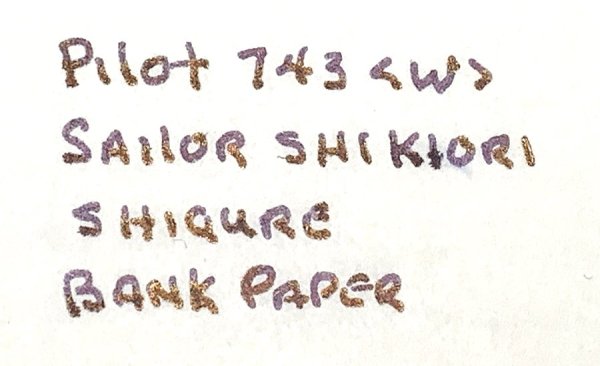 Pilot 743 <W>
SAilOR SHIKIORI
SHIGURE
BANK PAPER